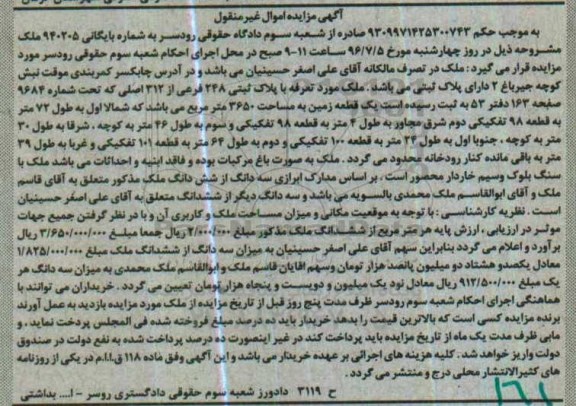 آگهی مزایده اموال غیرمنقول
به موجب حکم ۹۳۰۹۹۷۱۴۲۵۳۰۰۷۴۳ صادره از شعبه سوم دادگاه حقوقی رودسر به شماره بایگانی ۹۴۰۲۰۵ ملک
مشروحه ذیل در روز چهارشنبه مورخ ۹۶/۷/۵ ساعت ۱۱-۹ صبح در محل اجرای احکام شعبه سوم حقوقی رودسر مورد
مزایده قرار می گیرد : ملک در تصرف مالکانه آقای علی اصغر حسینیان می باشد و در آدرس چابکسر کمربندی موقت نبش
کوچه جیرباغ ۲ دارای پلاک ثبتی می باشد . ملک مورد تعرفه با پلاک ثبتی ۲۴۸ فرعی از ۳۱۲ اصلی که تحت شماره ۹۶۸۴
صفحه ۱۶۳ دفتر ۵۳ به ثبت رسیده است یک قطعه زمین به مساحت ۳۶۵۰ متر مربع می باشد که شمالا اول به طول ۷۲ متر
به قطعه ۹۸ تفکیکی دوم شرق مجاور به طول ۴ متر به قطعه ۹۸ تفکیکی و سوم به طول ۴۶ متر به کوچه ، شرقا به طول ۳۰
متر به کوچه ، جنوبا اول به طول ۳۴ متر به قطعه ۱۰۰ تفکیکی و دوم به طول ۶۴ متر به قطعه ۱۰۱ تفکیکی و غربا به طول ۳۹
متر به باقی مانده کنار رودخانه محدود می گردد . ملک به صورت باغ مرکبات بوده و فاقد ابنیه و احداثات می باشد ملک با
سنگ بلوک وسیم خاردار محصور است . بر اساس مدارک ابرازی سه دانگ از شش دانگ ملک مذکور متعلق به آقای قاسم
ملک و آقای ابوالقاسم ملک محمدی بالسویه می باشد و سه دانگ دیگر از ششدانگ متعلق به آقای علی اصغر حسینیان
است . نظریه کارشناسی : با توجه به موقعیت مکانی و میزان مساحت ملک و کاربری آن و با در نظر گرفتن جمیع جهات
موثر در ارزیابی ، ارزش پایه هر متر مربع از ششدانگ ملک مذکور مبلغ ۲/۰۰۰/۰۰۰ ریال جمعا مبلغ ۳/۶۵۰/۰۰۰/۰۰۰ ریال
برآورد و اعلام می گردد بنابراین سهم آقای علی اصغر حسینیان به میزان سه دانگ از ششدانگ ملک مبلغ ۱/۸۲۵/۰۰۰/۰۰۰
معادل یکصدو هشتاد دو میلیون پانصد هزار تومان وسهم اقایان قاسم ملک و ابوالقاسم ملک محمدی به میزان سه دانگ هر
یک مبلغ ۹۱۲/۵۰۰/۰۰۰ ریال معادل نود یک میلیون و دویست و پنجاه هزار تومان تعیین می گردد . خریداران می توانند با
هماهنگی اجرای احکام شعبه سوم رودسر ظرف مدت پنج روز قبل از تاریخ مزایده از ملک مورد مزایده بازدید به عمل آورند
برنده مزایده کسی است که بالاترین قیمت را بدهد خریدار باید ده درصد مبلغ فروخته شده فی المجلس پرداخت نماید ، و
مابی ظرف مدت یک ماه از تاریخ مزایده باید پرداخت کند در غیر اینصورت ده درصد پرداخت شده به نفع دولت در صندوق
دولت واریز خواهد شد . کلیه هزینه های اجرائی بر عهده خریدار می باشد و این آگهی وفق ماده ۱۱۸ ق.ا.ا.م در یکی از روزنامه
های کثیرالانتشار محلی درج و منتشر می گردد .
ح ۳۱۱۹ دادورز شعبه سوم حقوقی دادگستری روسر - ا.... بداشتی